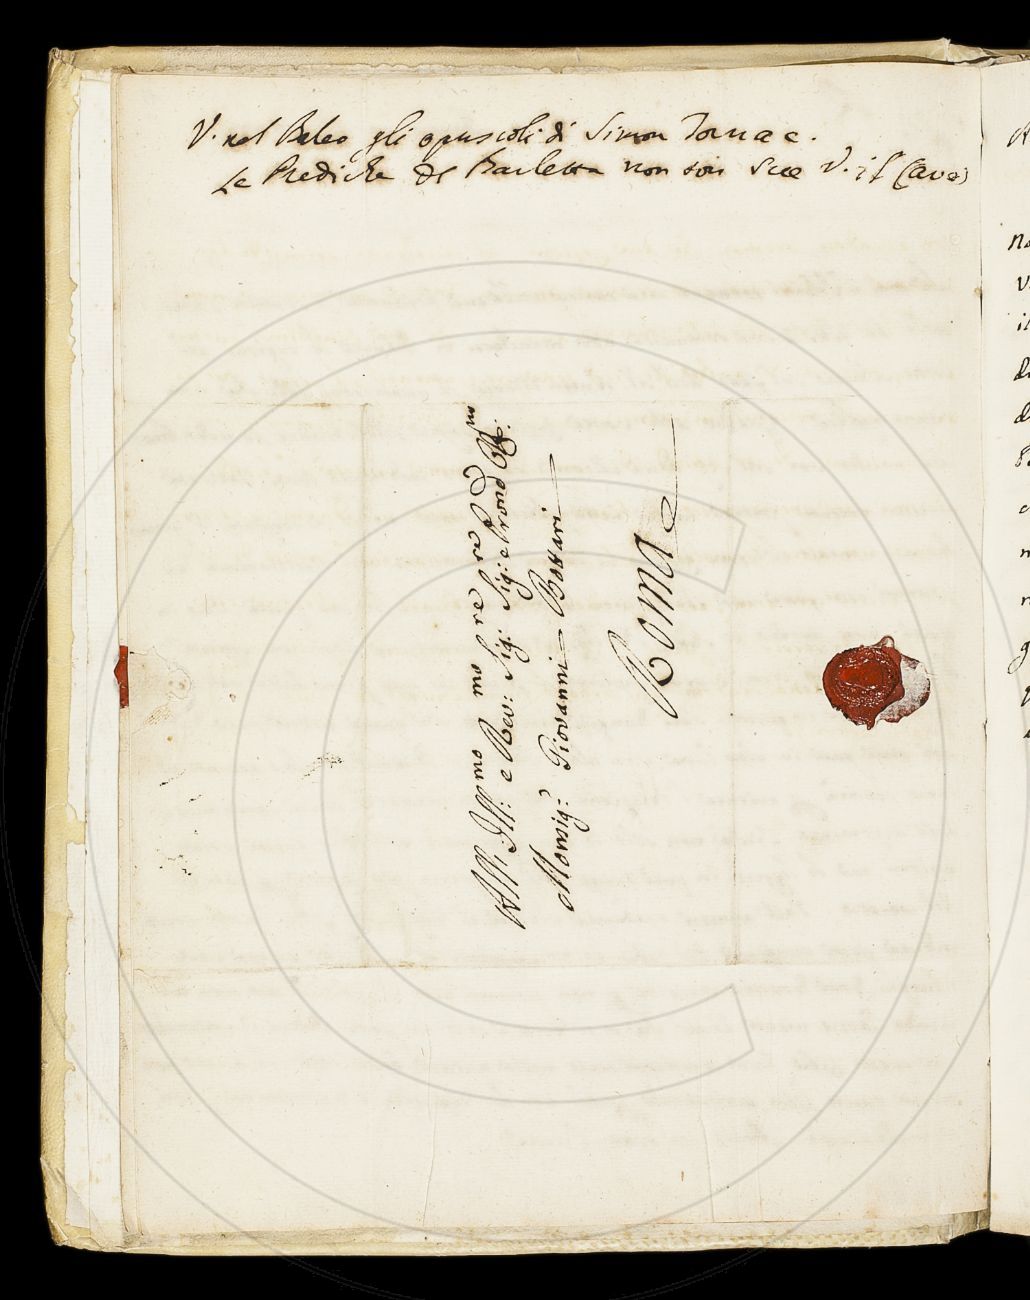 V. nel Baleo gli opuscoli di Simon Tornac.
Le Prediche del Barletta non son sue V. il Cave
All' Ill:mo e Rev:mo Sig:re Sig:re Pron Col:mo
Monsig:r Giovanni Bottari
Roma